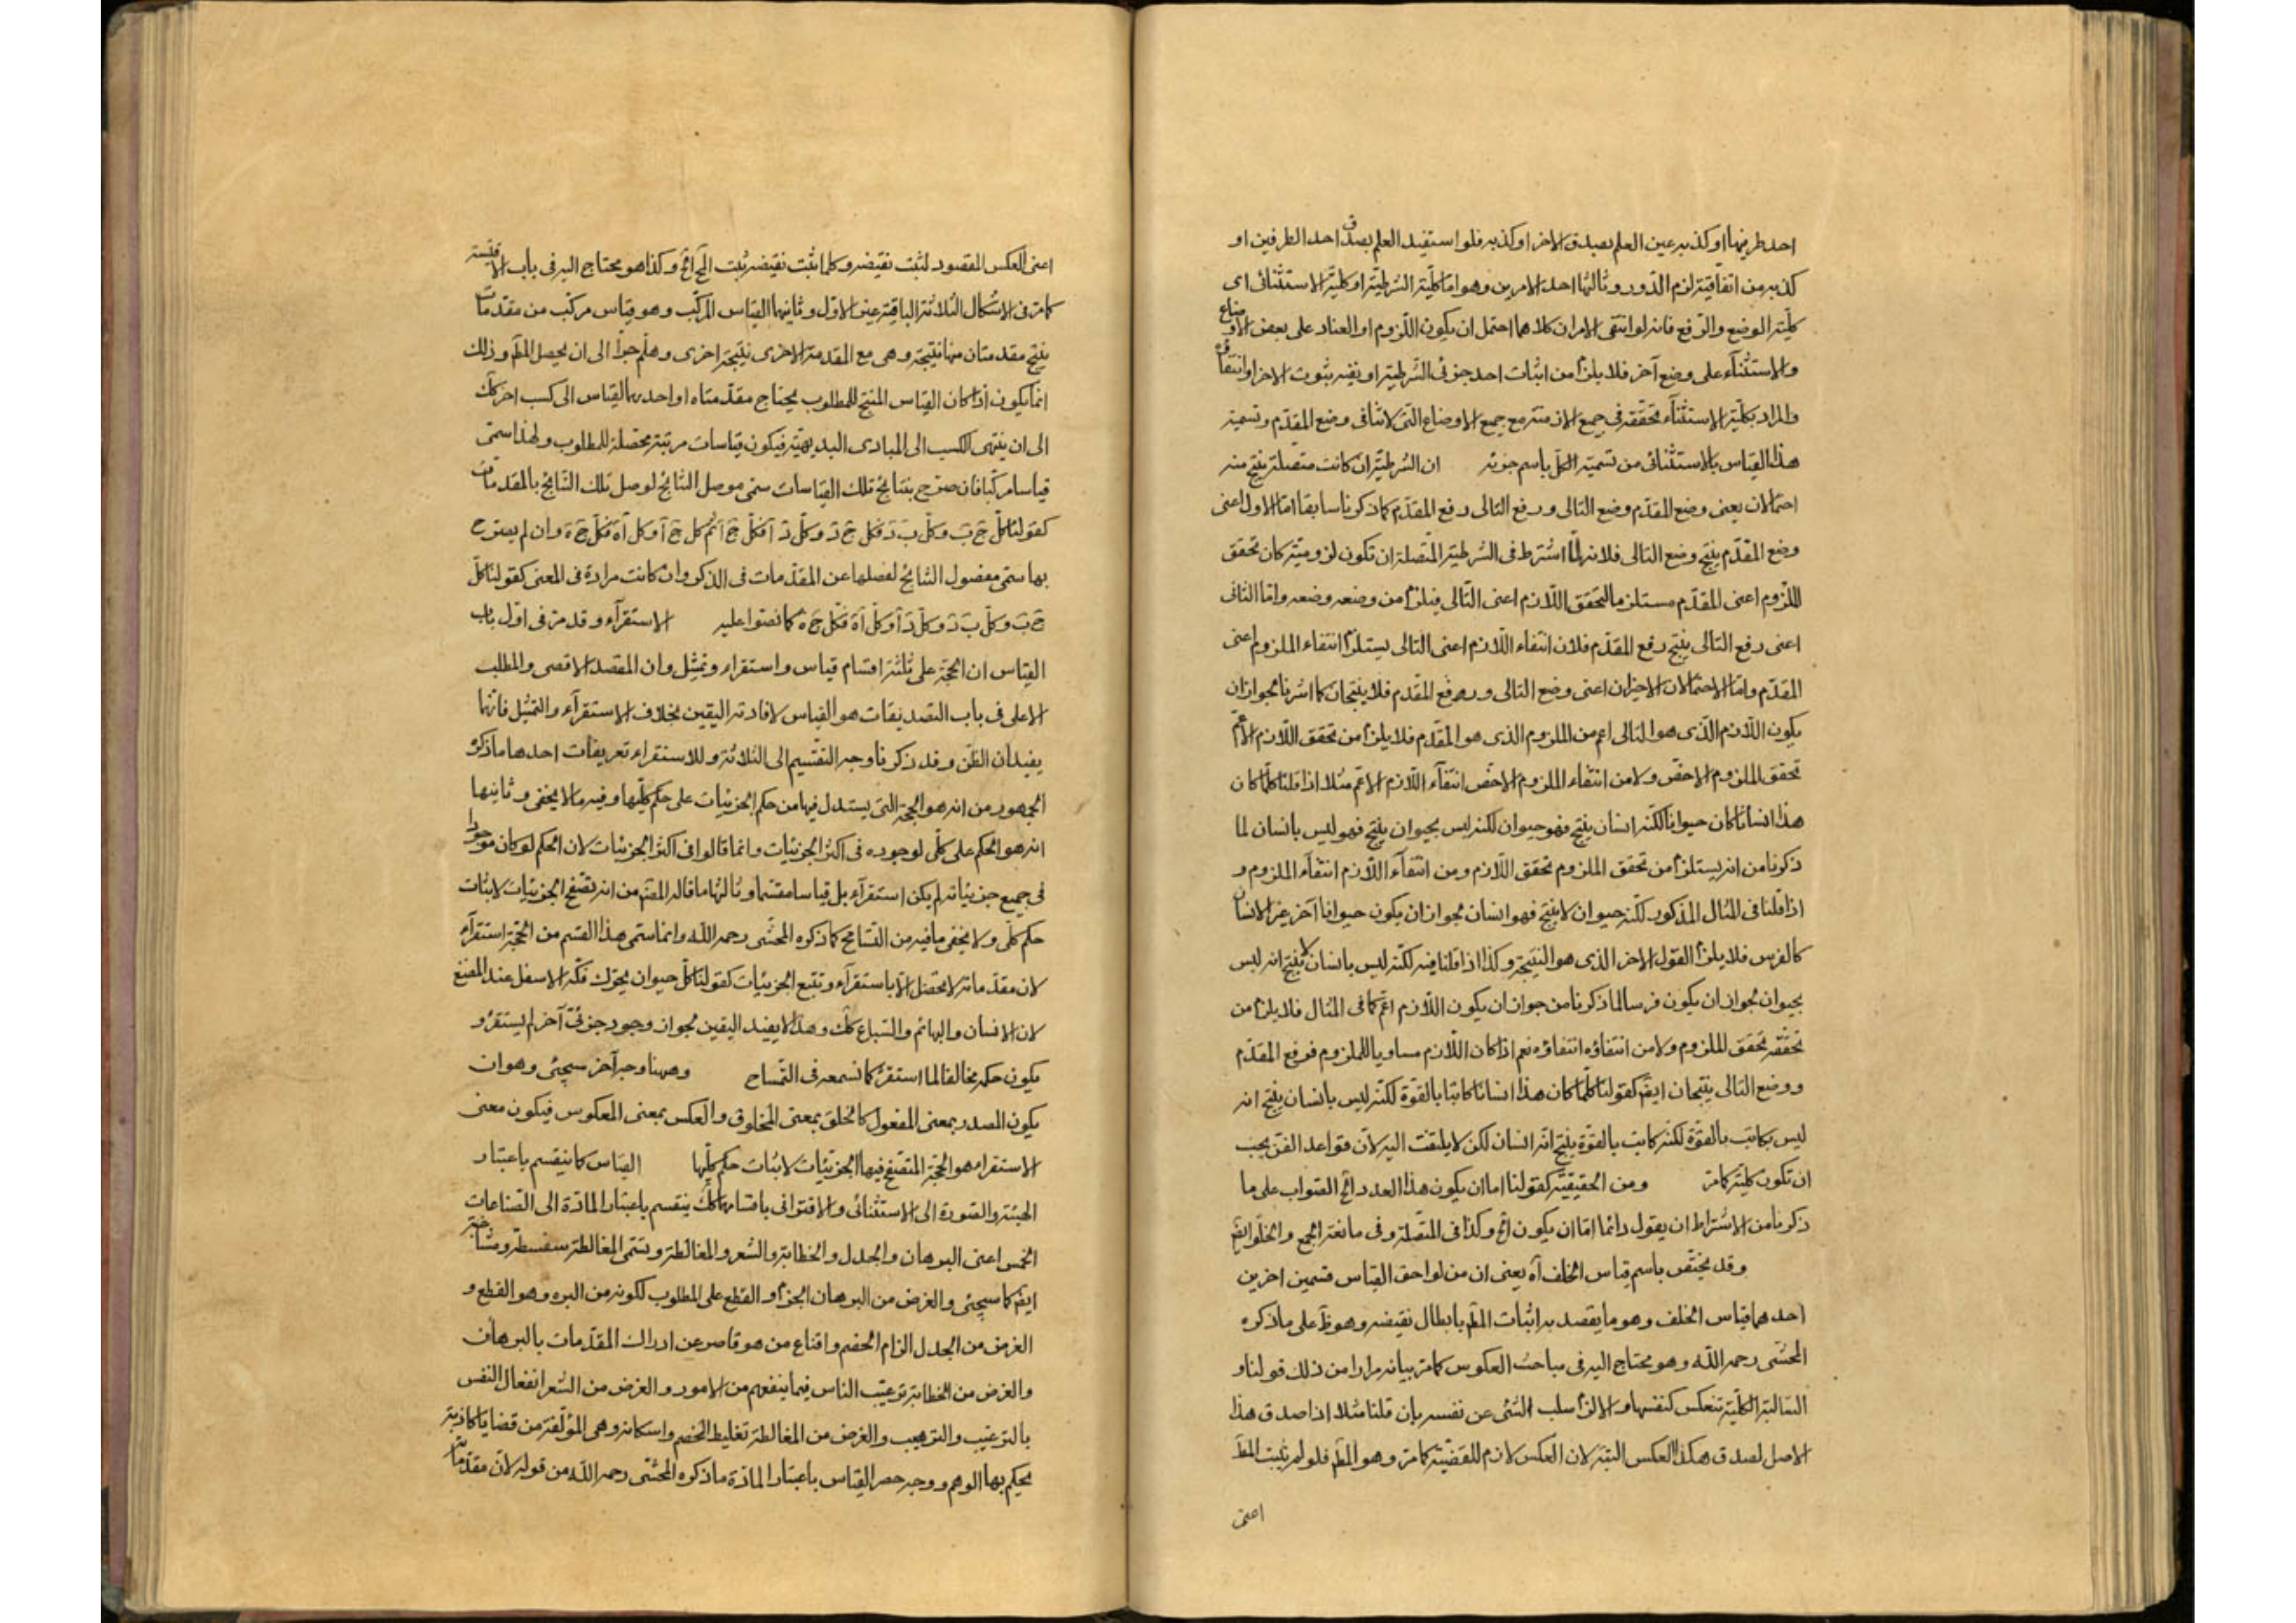 احد طرفيها او كذبه عين العلم بصدق الاخر او كذبه فلو استفيد العلم بصدق احد الطرفين او
كذبه من اتفاقيته لزم الدور وثالثها احد الامرين وهو اما كلية الشرطية او كلية الاستثنائى اى
كلية الوضع والرفع فانه لو انتفى الامران كلاهما احتمل ان يكون اللزوم او العناد على بعض الاوضاع
والاستثنآء على وضع آخر فلا يلزم من اثبات احد جزئى الشرطية او نفيه ثبوت الاخر او انتفاؤه
والمراد بكلية الاستثنآء تحققه فى جميع الازمنة مع جميع الاوضاع التى لا تنافى وضع المقدم وتسمية
هذا القياس بالاستثنائى من تسمية الكل باسم جزئه ان الشرطية ان كانت متصلة ينتج منه
احتمالان يعنى وضع المقدم وضع التالى ورفع التالى رفع المقدم كما ذكرنا سابقا اما الاول اعنى
وضع المقدم ينتج وضع التالى فلانه لما اشترط فى الشرطية المتصلة ان تكون لزومية كان تحقق
الملزوم اعنى المقدم مستلزما لتحقق اللازم اعنى التالى فيلزم من وضعه وضعه واما الثانى
اعنى رفع التالى ينتج رفع المقدم فلان انتفاء اللازم اعنى التالى يستلزم انتفاء الملزوم اعنى
المقدم واما الاحتمالان الاخيران اعنى وضع التالى ورفع المقدم فلا ينتجان كما اشرنا لجواز ان
يكون اللازم الذى هو التالى اعم من الملزوم الذى هو المقدم فلا يلزم من تحقق اللازم الاعم
تحقق الملزوم الاخص ولا من انتفاء الملزوم الاخص انتفآء اللازم الاعم مثلا اذا قلنا كلما كان
هذا انسانا كان حيوانا لكنه انسان ينتج فهو حيوان لكنه ليس بحيوان ينتج فهو ليس بانسان لما
ذكرنا من انه يستلزم من تحقق الملزوم تحقق اللازم ومن انتفآء اللازم انتفآء الملزوم و
اذا قلنا فى المثال المذكور لكنه حيوان لا ينتج فهو انسان لجواز ان يكون حيوانا آخر غير الانسان
كالفرس فلا يلزم القول الاخر الذى هو النتيجة وكذا اذا قلنا فيه لكنه ليس بانسان لا ينتج انه ليس
بحيوان لجواز ان يكون فرسا لما ذكرنا من جواز ان يكون اللازم اعم كما فى المثال فلا يلزم من
تحققه تحقق الملزوم ولا من انتفاؤه انتفاؤه نعم اذا كان اللازم مساويا للملزوم فرفع المقدم
ووضع التالى ينتجان ايضً كقولنا كلما كان هذا انسانا كان كاتبا بالقوة لكنه ليس بانسان ينتج انه
ليس بكاتب بالقوة لكنه كاتب بالقوة ينتج انه انسان لكن لا يلتفت اليه لان قواعد الفن يجب
ان تكون كلية كما مر ومن الحقيقية كقولنا اما ان يكون هذا العدد الخ الصواب على ما
ذكرنا من الاشتراط ان يقول دائما اما ان يكون الخ وكذا فى المتصلة وفى مانعة الجمع والخلو ايضً
وقد يختص باسم قياس الخلف آه يعنى ان من لواحق القياس قسمين اخرين
احدهما قياس الخلف وهو ما يقصد به اثبات المط بابطال نقيضه وهو ظ على ما ذكره
المحشى رحمه الله وهو محتاج اليه فى مباحث العكوس كما مر بيانه مرارا من ذلك قولنا و
السالبة الكلية تنعكس كنفسها والا لزم سلب الشئ عن نفسه بان قلنا مثلا اذا صدق هذا
الاصل لصدق هكذا العكس البتة لان العكس لازم للقضية كما مر وهو المط فلو لم يثبت المط
اعنى
اعنى العكس المقصود لثبت نقيضه وكلما ثبت نقيضه ثبت المحال الخ وكذا هو محتاج اليه فى باب الاقيسة
كما مر فى الاشكال الثلاثة الباقية غير الاول وثانيهما القياس المركب وهو قياس مركب من مقدمات
ينتج مقدمتان منها نتيجة وهى مع المقدمة الاخرى نتيجة اخرى وهلم جرا الى ان يحصل المط وذلك
انما يكون اذا كان القياس المنتج للمطلوب يحتاج مقدمتاه او احديهما القياس الى كسب اخر كك
الى ان ينتهى الكسب الى المبادى البديهية فيكون قياسات مرتبة محصلة للمطلوب ولهذا سمى
قياسا مركبا فان صرح بنتايج تلك القياسات سمى موصل النتايج لوصل تلك النتايج بالمقدمات
كقولنا كل ج ب وكل ب د فكل ج د وكل د ا فكل ج ا ثم كل ج ا وكل ا ه فكل ج ه وان لم يصرح
بها سمى مفصول النتايج لفصلها عن المقدمات فى الذكر وان كانت مرادة فى المعنى كقولنا كل
ج ب وكل ب د وكل د ا وكل ا ه فكل ج ه كما نصوا عليه الاستقرآء وقد مر فى اول باب
القياس ان الحجة على ثلثة اقسام قياس واستقراء وتمثيل وان المقصد الاقصى والمطلب
الاعلى فى باب التصديقات هو القياس لافادته اليقين بخلاف الاستقرآء والتمثيل فانهما
يفيدان الظن وقد ذكرنا وجه التقسيم الى الثلاثة وللاستقراء تعريفات احدها ما ذكره
الجمهور من انه هو الحجة التى يستدل فيها من حكم الجزئيات على حكم كليها وفيه ما لا يخفى وثانيها
انه هو الحكم على كلى لوجوده فى اكثر الجزئيات وانما قالوا فى اكثر الجزئيات لان الحكم لو كان موجودا
فى جميع جزئياته لم يكن استقرآء بل قياسا مقسما وثالثها ما قاله المصنف من انه تصفح الجزئيات لاثبات
حكم كلى ولا يخفى ما فيه من التسامح كما ذكره المحشى رحمه الله وانما سمى هذا القسم من الحجة استقرآء
لان مقدماته لا تحصل الا باستقرآء وتتبع الجزئيات كقولنا كل حيوان يحرك فكه الاسفل عند المضغ
لان الانسان والبهائم والسباع كك وهذا لا يفيد اليقين لجواز وجود جزئى آخر لم يستقرء و
يكون حكمه مخالفا لما استقرئ كما نسمعه فى التمساح وههنا وجه آخر سيجئى وهو ان
يكون المصدر بمعنى المفعول كالخلق بمعنى المخلوق والعكس بمعنى المعكوس فيكون معنى
الاستقراء هو الحجة المتصفح فيها الجزئيات لاثبات حكم كليها القياس كما ينقسم باعتبار
الهيئة والصورة الى الاستثنائى والاقترانى باقسامهما كك ينقسم باعتبار المادة الى الصناعات
الخمس اعنى البرهان والجدل والخطابة والشعر والمغالطة وتسمى المغالطة سفسطة ومشاغبة
ايضً كما سيجئى والغرض من البرهان الجزم والقطع على المطلوب لكونه من البره وهو القطع و
الغرض من الجدل الزام الخصم واقناع من هو قاصر عن ادراك المقدمات بالبرهان
والغرض من الخطابة ترغيب الناس فيما ينفعهم من الامور والغرض من الشعر انفعال النفس
بالترغيب والترهيب والغرض من المغالطة تغليط الخصم واسكاته وهى المؤلفة من قضايا كاذبة
يحكم بها الوهم ووجه حصر القياس باعتبار المادة ما ذكره المحشى رحمه الله من قوله لان مقدماته